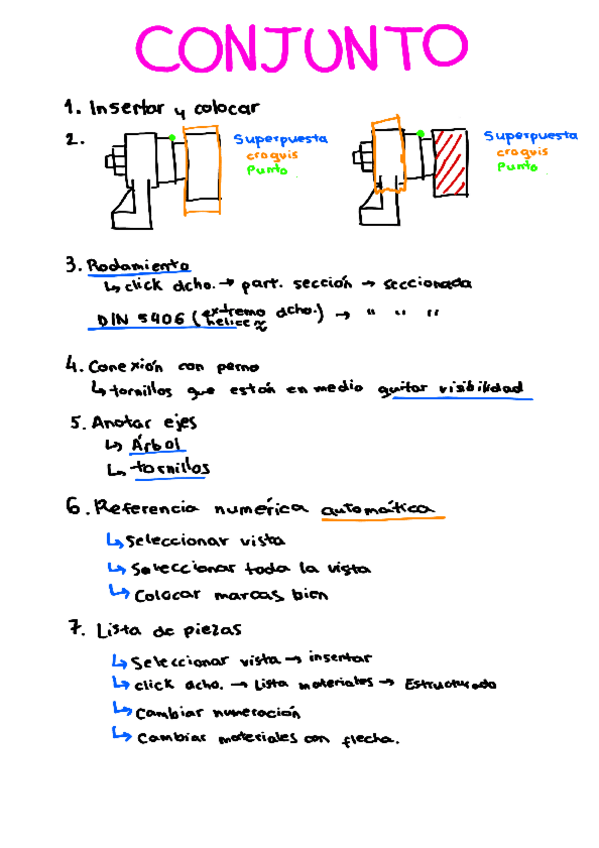 CONJUNTO
1. Insertar y colocar
2.
Superpuesta
croquis
Punto
Superpuesta
croquis
Punto
3. Rodamiento
↳ click dcho. → part. sección → seccionada
DIN 5406 (extremo dcho.) → " " "
helice
4. Conexión con perno
↳ tornillos que están en medio quitar visibilidad
5. Anotar ejes
↳ Árbol
↳ tornillos
6. Referencia numérica automática
↳ Seleccionar vista
↳ Seleccionar toda la vista
↳ Colocar marcas bien
7. Lista de piezas
↳ Seleccionar vista → insertar
↳ click dcho. → Lista materiales → Estructurado
↳ Cambiar numeración
↳ Cambiar materiales con flecha.